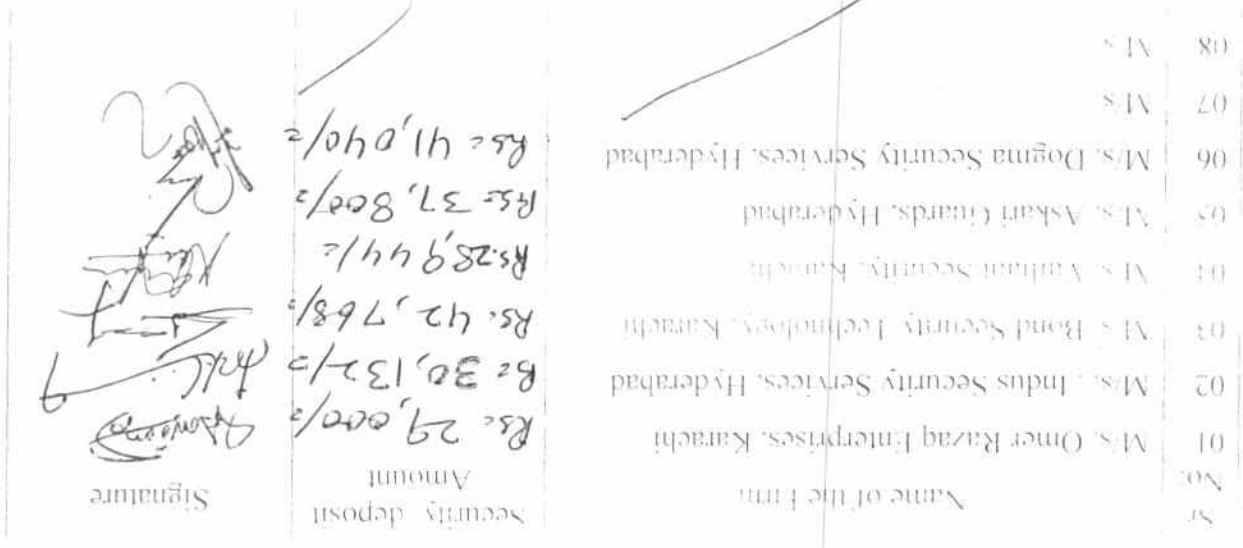 Sr No: Name of the Firm Security deposit Amount Signature
01 M/s. Omer Razaq Enterprises, Karachi Rs= 29,000/=
02 M/s. . Indus Security Services, Hyderabad Rs= 30,132/=
03 M/s. Bond Security Technology, Karachi Rs. 42,768/=
04 M/s. Security, Karachi Rs. 28,944/=
05 M/s. Askari Guards, Hyderabad Rs= 37,800/=
06 M/s. Dogma Security Services, Hyderabad Rs= 41,040/=
07 M/s
08 M/s